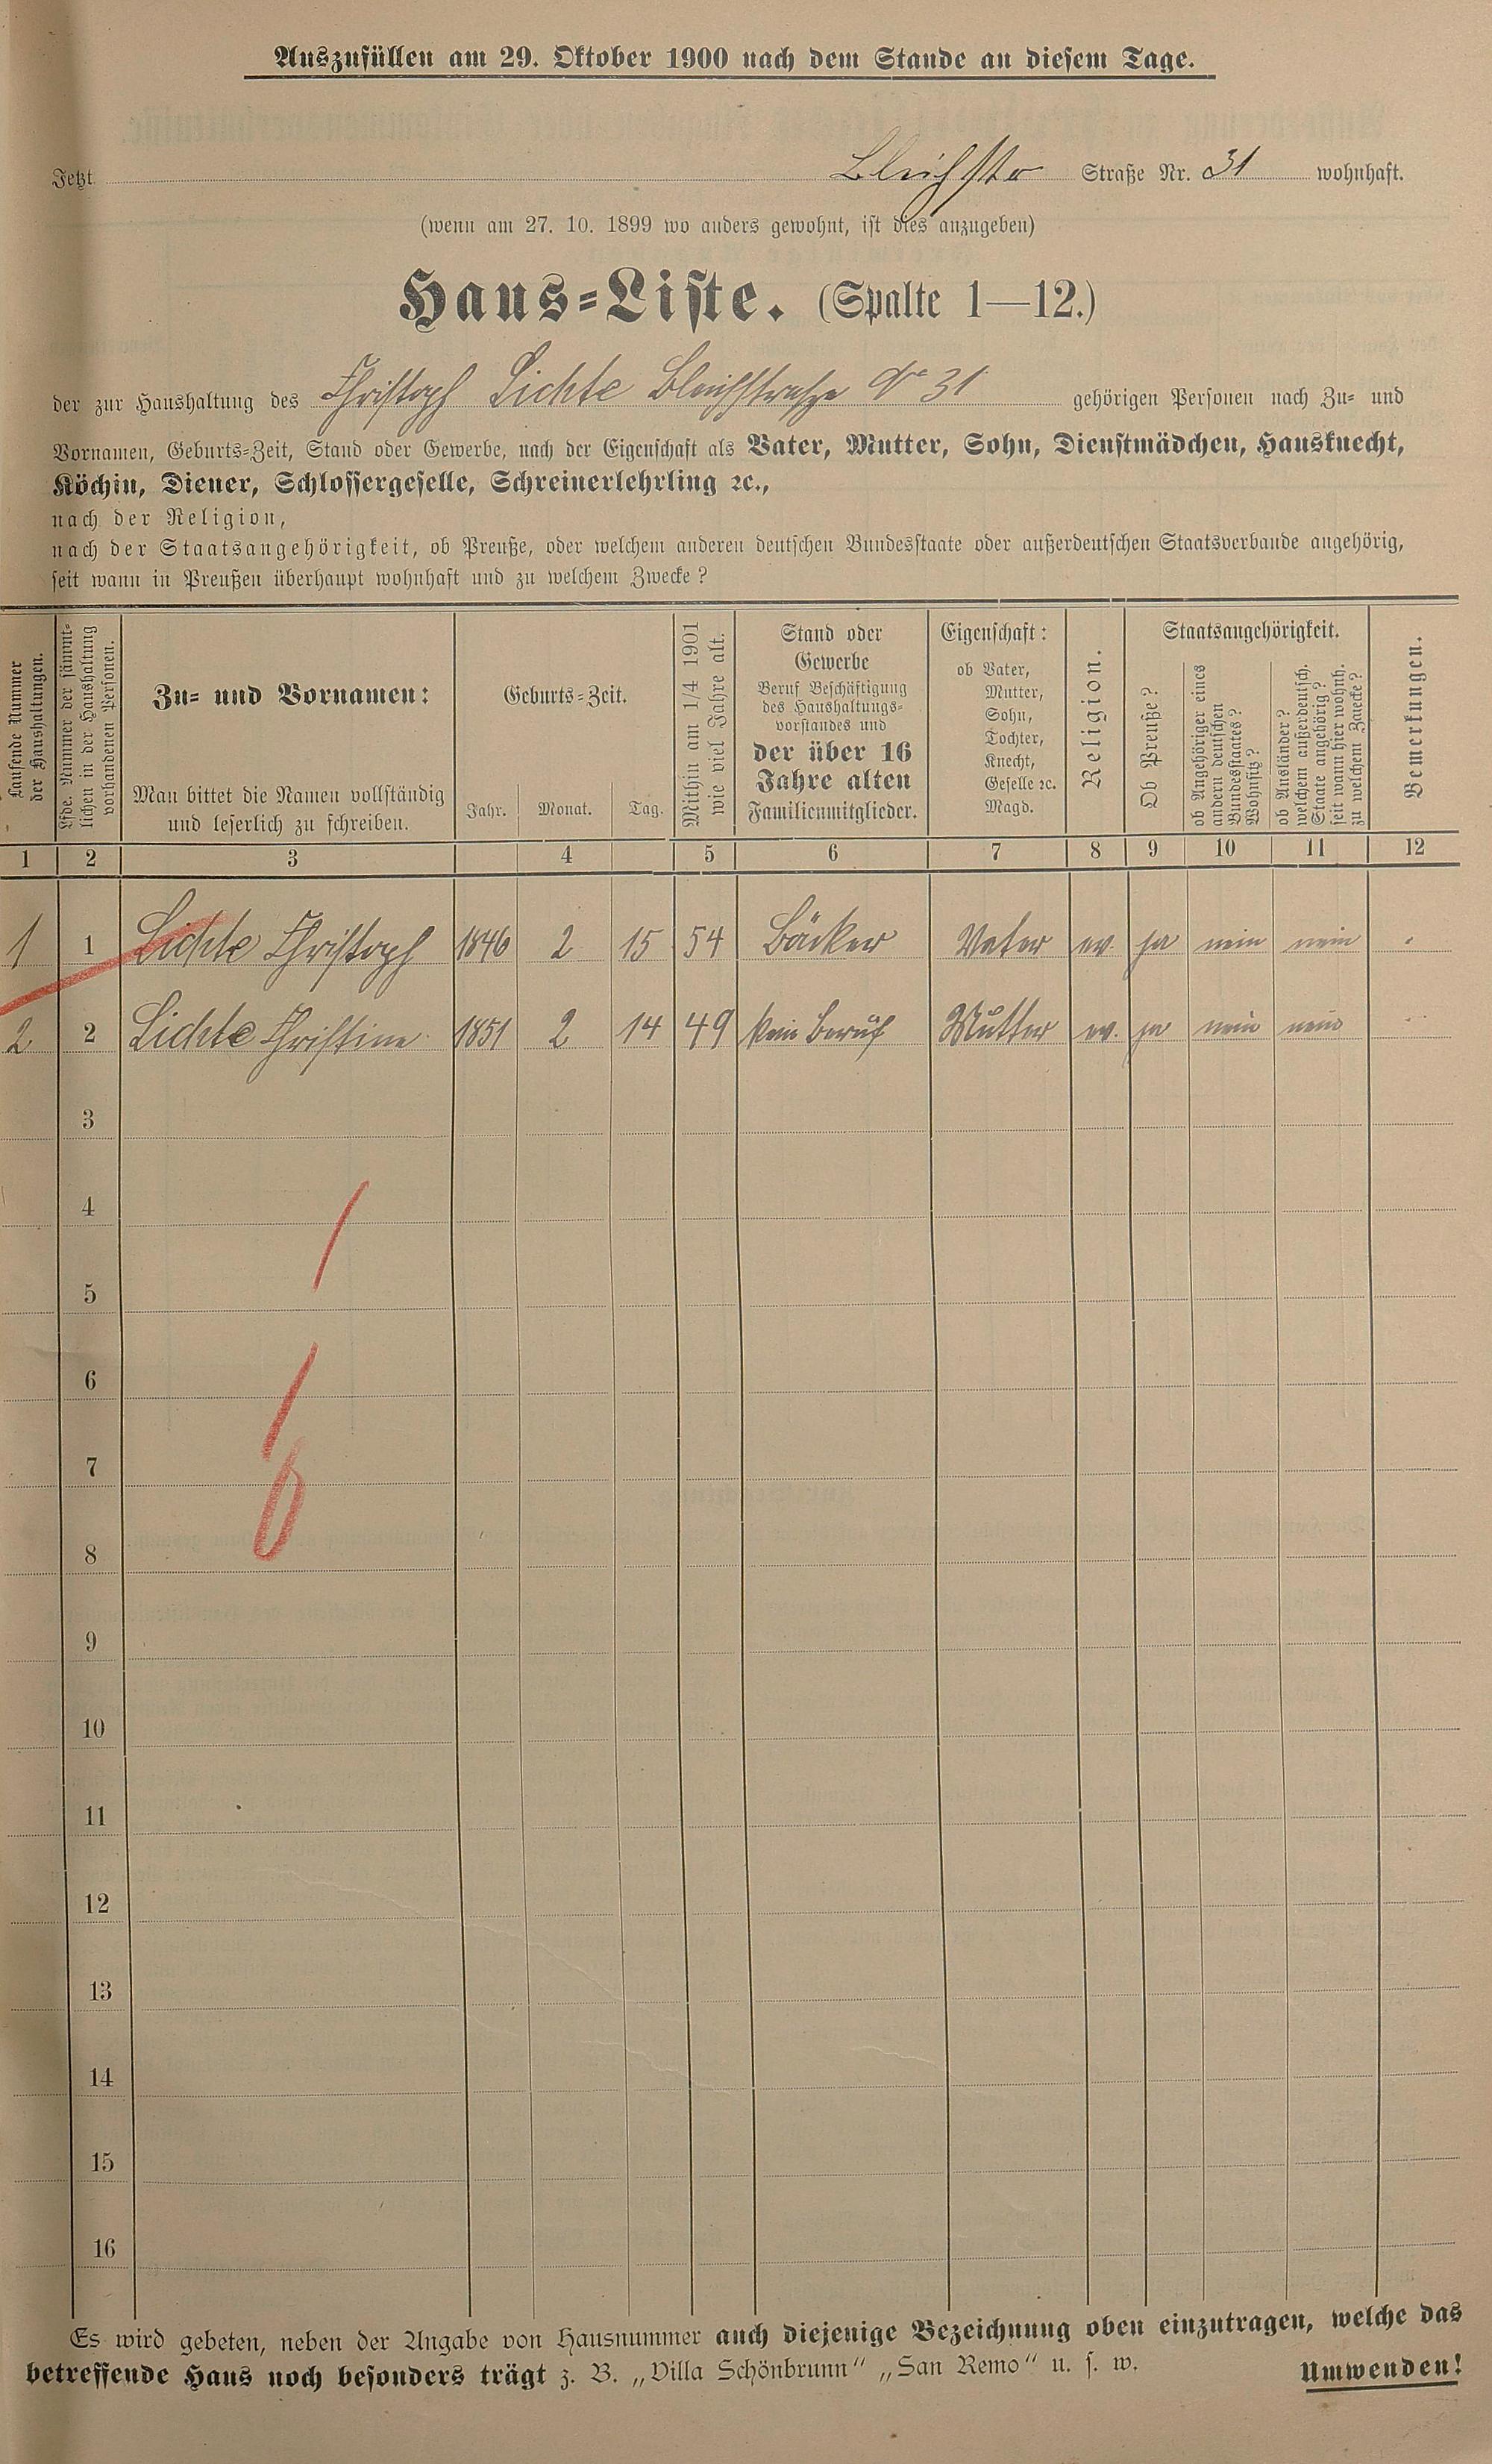 Auszufüllen am 29. Oktober 1900 nach dem Stande an diesem Tage.
Jetzt Bleichstr Straße Nr. 31 wohnhaft.
(wenn am 27. 10. 1899 wo anders gewohnt, ist dies anzugeben)
Haus-Liste. (Spalte 1—12.)
der zur Haushaltung des Christoph Lichte Bleichstraße No 31 gehörigen Personen nach Zu- und
Vornamen, Geburts-Zeit, Stand oder Gewerbe, nach der Eigenschaft als Vater, Mutter, Sohn, Dienstmädchen, Hausknecht,
Köchin, Diener, Schlossergeselle, Schreinerlehrling ꝛc.,
nach der Religion,
nach der Staatsangehörigkeit, ob Preuße, oder welchem anderen deutschen Bundesstaate oder außerdeutschen Staatsverbande angehörig,
seit wann in Preußen überhaupt wohnhaft und zu welchem Zwecke?
Laufende Nummer
der Haushaltungen.
Lfde. Nummer der sämmt-
lichen in der Haushaltung
vorhandenen Personen.
Zu- und Vornamen:
Man bittet die Namen vollständig
und leserlich zu schreiben.
Geburts-Zeit.
Jahr. Monat. Tag.
Mithin am 1/4 1901
wie viel Jahre alt.
Stand oder
Gewerbe
Beruf Beschäftigung
des Haushaltungs-
vorstandes und
der über 16
Jahre alten
Familienmitglieder.
Eigenschaft:
ob Vater,
Mutter,
Sohn,
Tochter,
Knecht,
Geselle ꝛc.
Magd.
Religion.
Staatsangehörigkeit.
Ob Preuße?
ob Angehöriger eines
andern deutschen
Bundesstaates?
Wohnsitz?
ob Ausländer?
welchem außerdeutsch.
Staate angehörig?
seit wann hier wohnh.
zu welchem Zwecke?
Bemerkungen.
1 2 3 4 5 6 7 8 9 10 11 12
1 1 Lichte Christoph 1846 2 15 54 Bäcker Vater ev. ja nein nein
2 2 Lichte Christine 1851 2 14 49 kein Beruf Mutter ev. ja nein nein
3
4
5
6
7
8
9
10
11
12
13
14
15
16
Es wird gebeten, neben der Angabe von Hausnummer auch diejenige Bezeichnung oben einzutragen, welche das
betreffende Haus noch besonders trägt z. B. „Villa Schönbrunn“ „San Remo“ u. s. w. Umwenden!